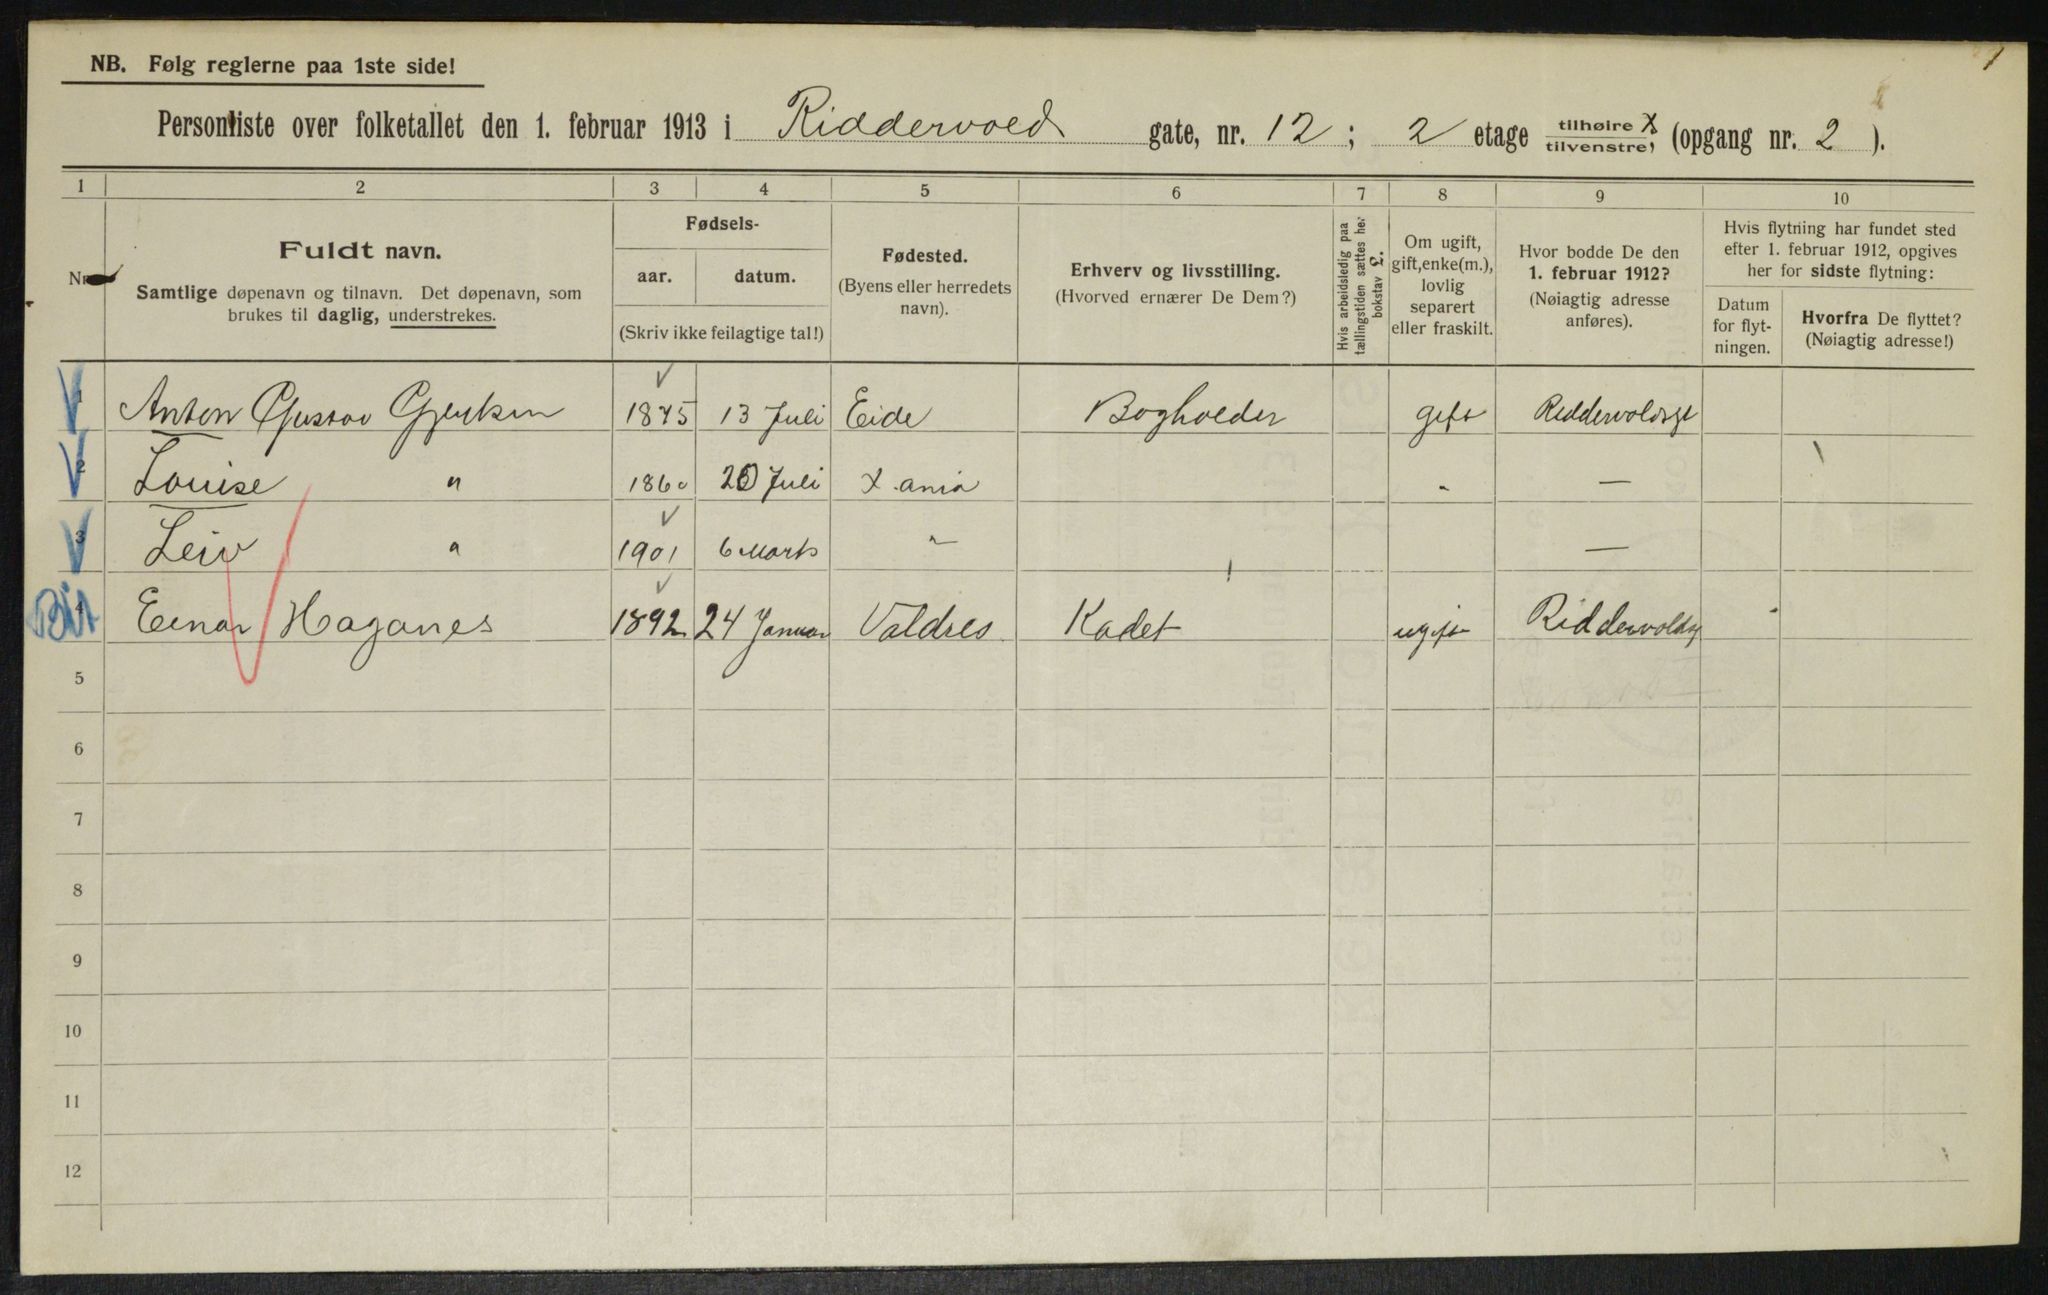 NB. Følg reglerne paa 1ste side!
Personliste over folketallet den 1. februar 1913 i Riddervold gate, nr. 12; 2 etage tilhøire X tilvenstre, (opgang nr. 2 ).
1 2 3 4 5 6 7 8 9 10
Nr.
Fuldt navn.
Samtlige døpenavn og tilnavn. Det døpenavn, som
brukes til daglig, understrekes.
Fødsels-
aar. datum.
(Skriv ikke feilagtige tal!)
Fødested.
(Byens eller herredets
navn).
Erhverv og livsstilling.
(Hvorved ernærer De Dem?)
Hvis arbeidsledig paa
tællingstiden sættes her
bokstav L.
Om ugift,
gift, enke(m.),
lovlig
separert
eller fraskilt.
Hvor bodde De den
1. februar 1912?
(Nøiagtig adresse
anføres).
Hvis flytning har fundet sted
efter 1. februar 1912, opgives
her for sidste flytning:
Datum
for flyt-
ningen.
Hvorfra De flyttet?
(Nøiagtig adresse!)
1 Anton Gustav 1875 13 Juli Eide Bogholder gift Riddervoldsgt
2 Louise " 1860 20 Juli X.ania " —
3 Leiv " 1901 6 Marts " —
4 Einar Haganes 1892 24 Januar Valdres Kadet ugift Riddervoldsg
5
6
7
8
9
10
11
12